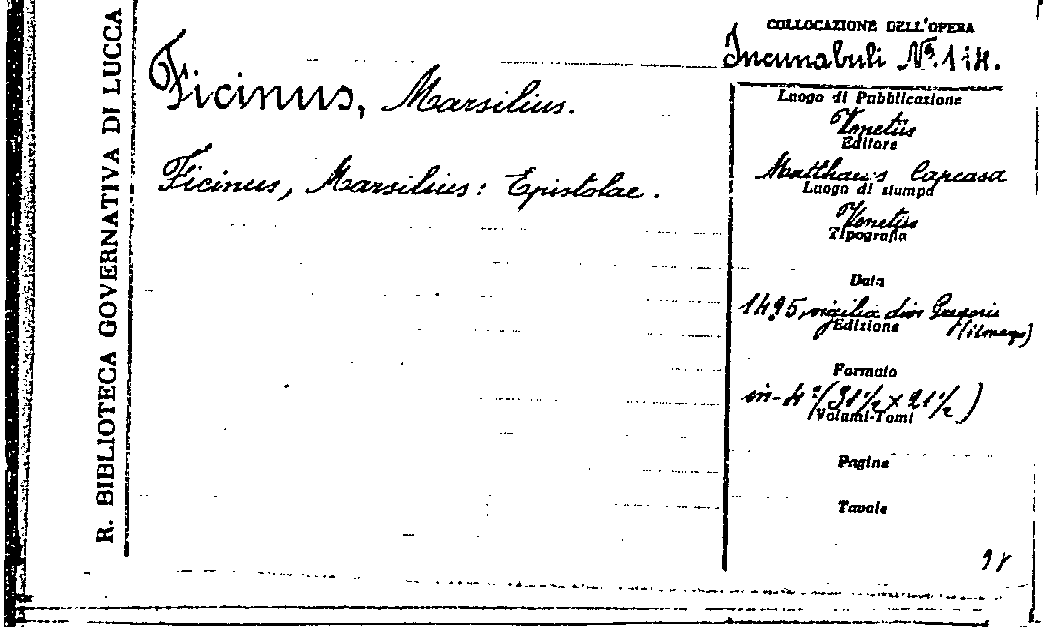 R. BIBLIOTECA GOVERNATIVA DI LUCCA
Ficinus, Marsilius.
Ficinus, Marsilius: Epistolae.
COLLOCAZIONE DELL'OPERA
Incunabuli Nº. 114.
Luogo di Pubblicazione
Venetiis
Editore
Matthaeus Capcasa
Luogo di stampa
Venetiis
Tipografia
Data
1495, vigilia divi Gregorii
Edizione
Formato
in-4º (31½ × 21½)
Volumi-Tomi
Pagine
Tavole